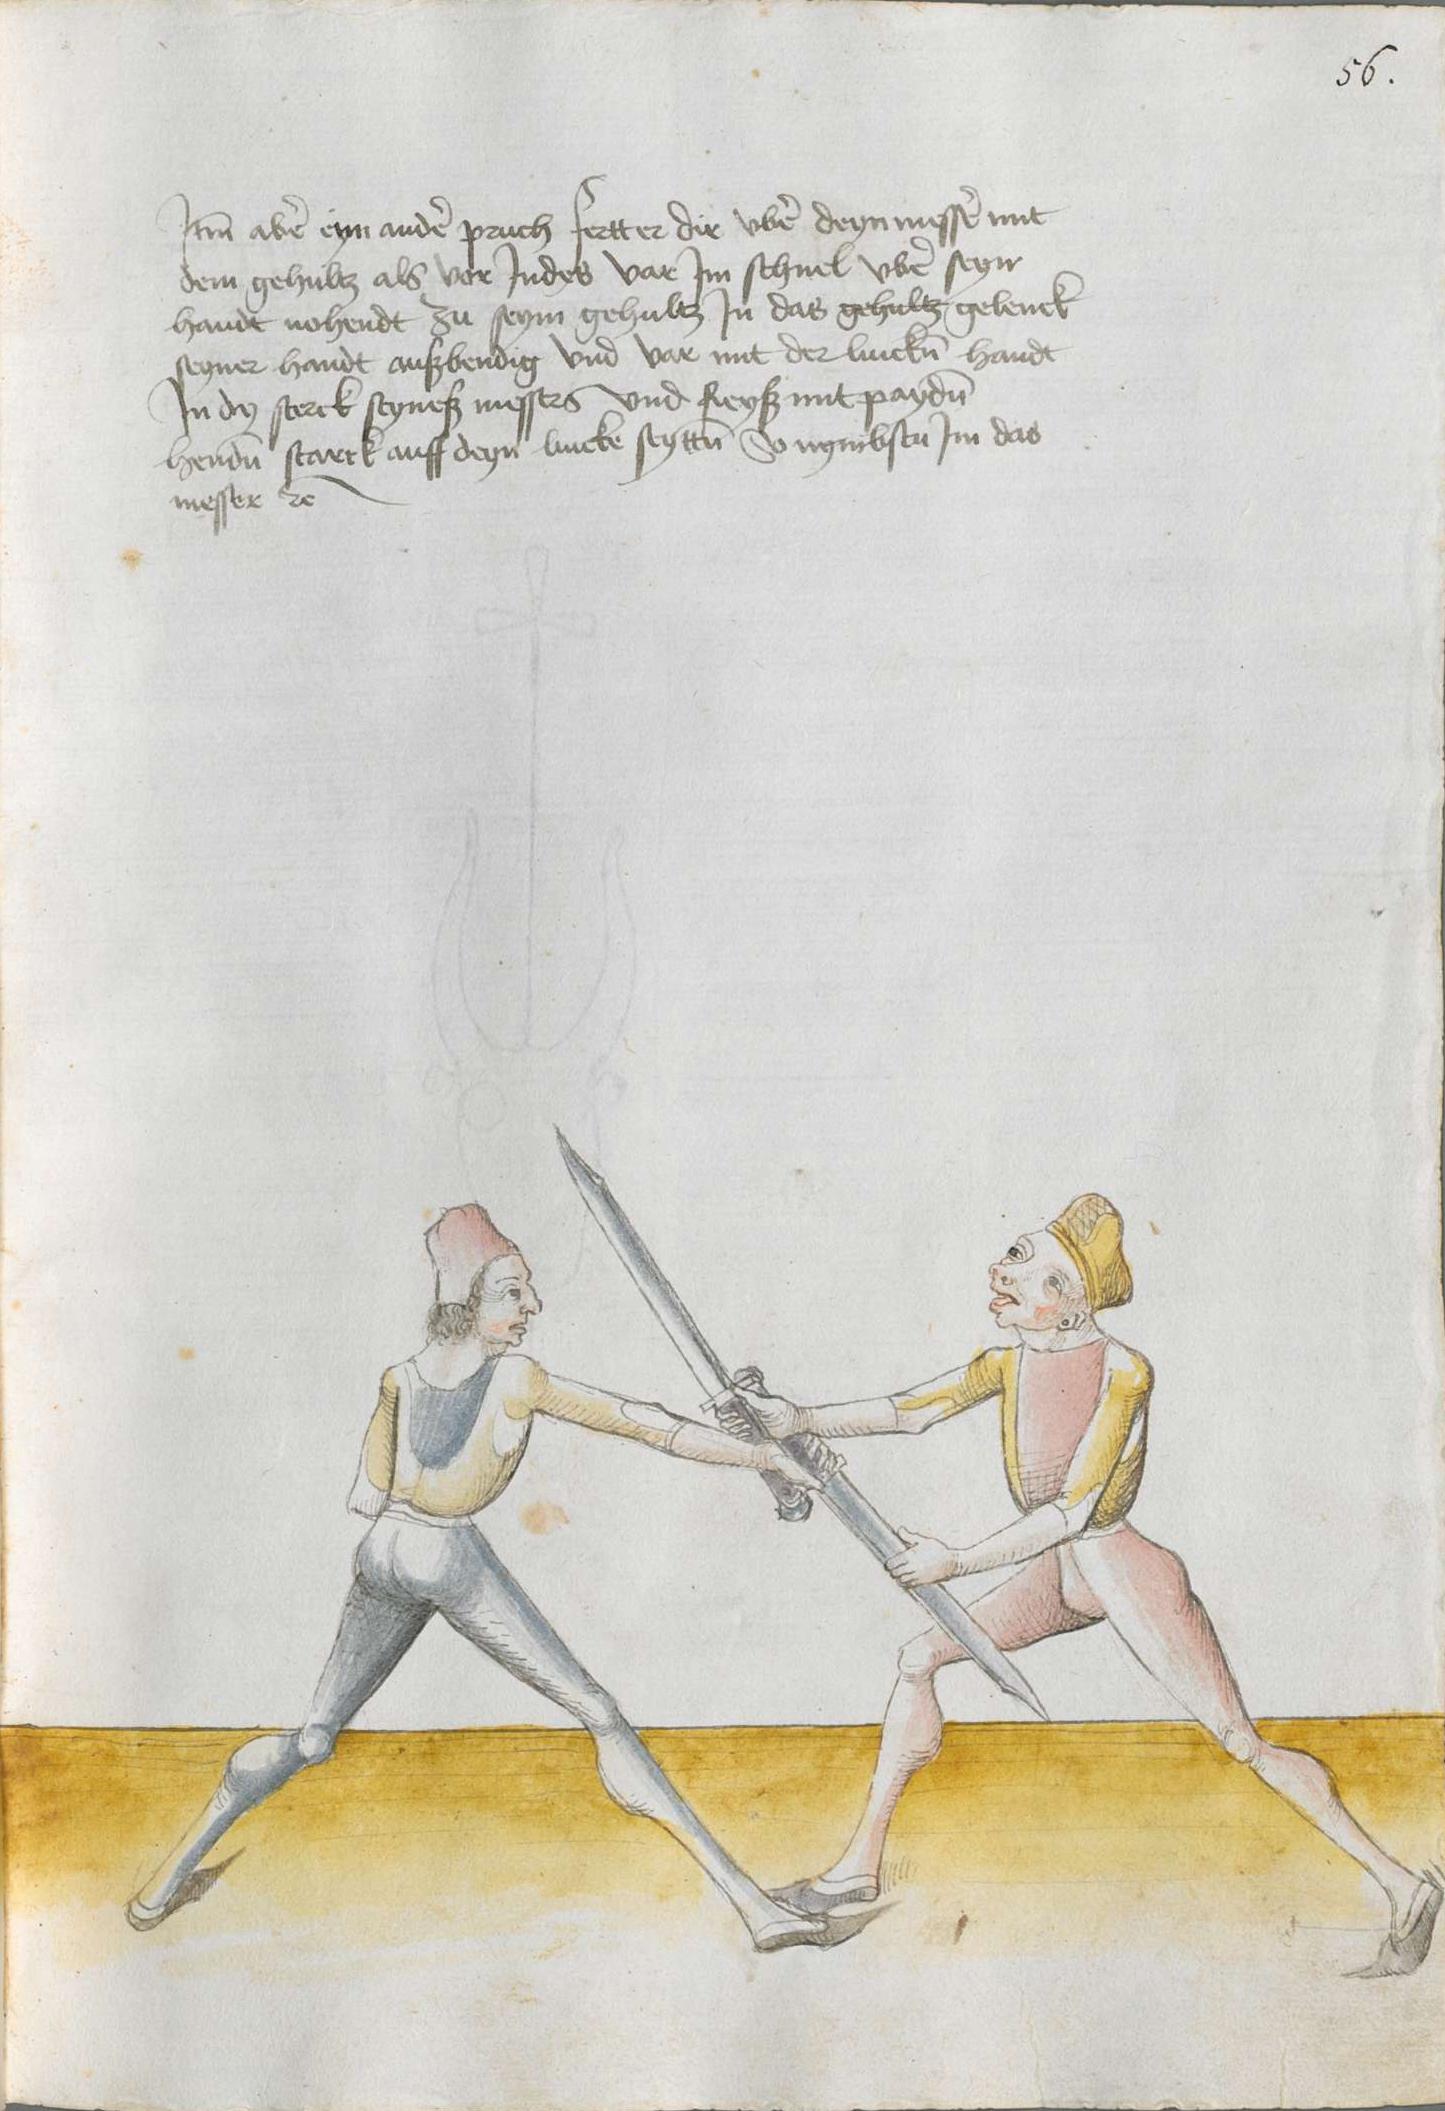 56.
Itm̄ aber̄ eyn ander̄ pruch fertt er dir vber̄ deyn messer̄ mit
dem gehultz als vor Indes var Jm schnel vber̄ seyn
handt nohendt zu seym gehultz Jn das gehultz gelenck
seyner handt auszbendig vnd var mit der lincku̅ handt
Jn dy sterck seynesz messers vnd Reysz mit paydn̄
hendn̄ starck auff deyn lincke seyttn̄ So nymbstu Jm das
messer ⁊c̄